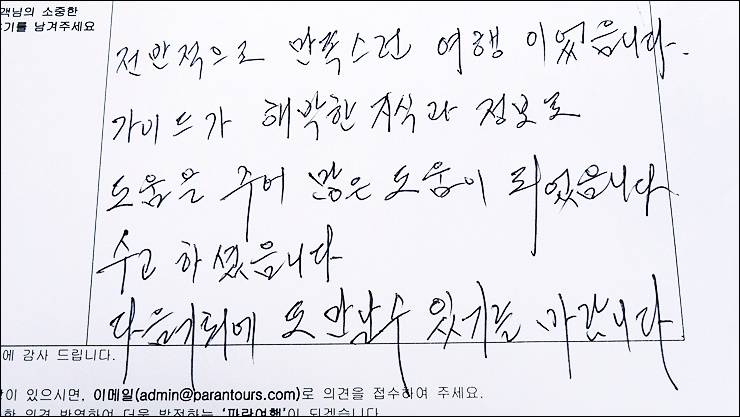 객님의 소중한
기를 남겨주세요
전반적으로 만족스런 여행 이었읍니다.
가이드가 해박한 지식과 정보로
도움을 주어 많은 도움이 되었읍니다
수고 하셨읍니다
다음기회에 또 만날수 있기를 바랍니다
에 감사 드립니다.
이 있으시면, 이메일(admin@parantours.com)로 의견을 접수하여 주세요.
한 의견 반영하여 더욱 발전하는 '파란여행'이 되겠습니다